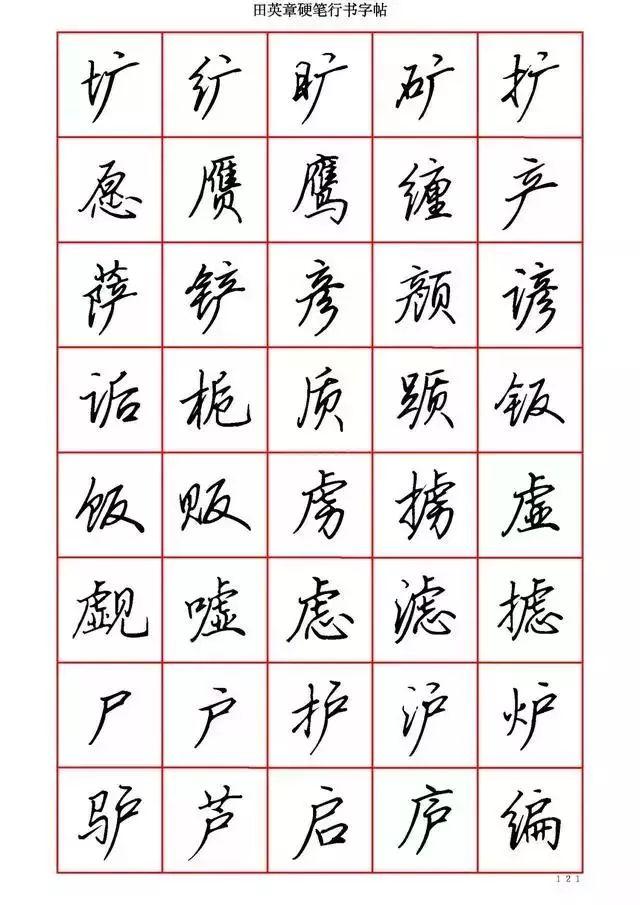 田英章硬笔行书字帖
圹 纩 旷 矿 扩
愿 赝 鹰 缠 产
萨 铲 彦 颜 谚
诟 桅 质 踬 钣
饭 贩 虏 掳 虚
觑 嘘 虑 滤 摅
尸 户 护 沪 炉
驴 芦 启 庐 编
121